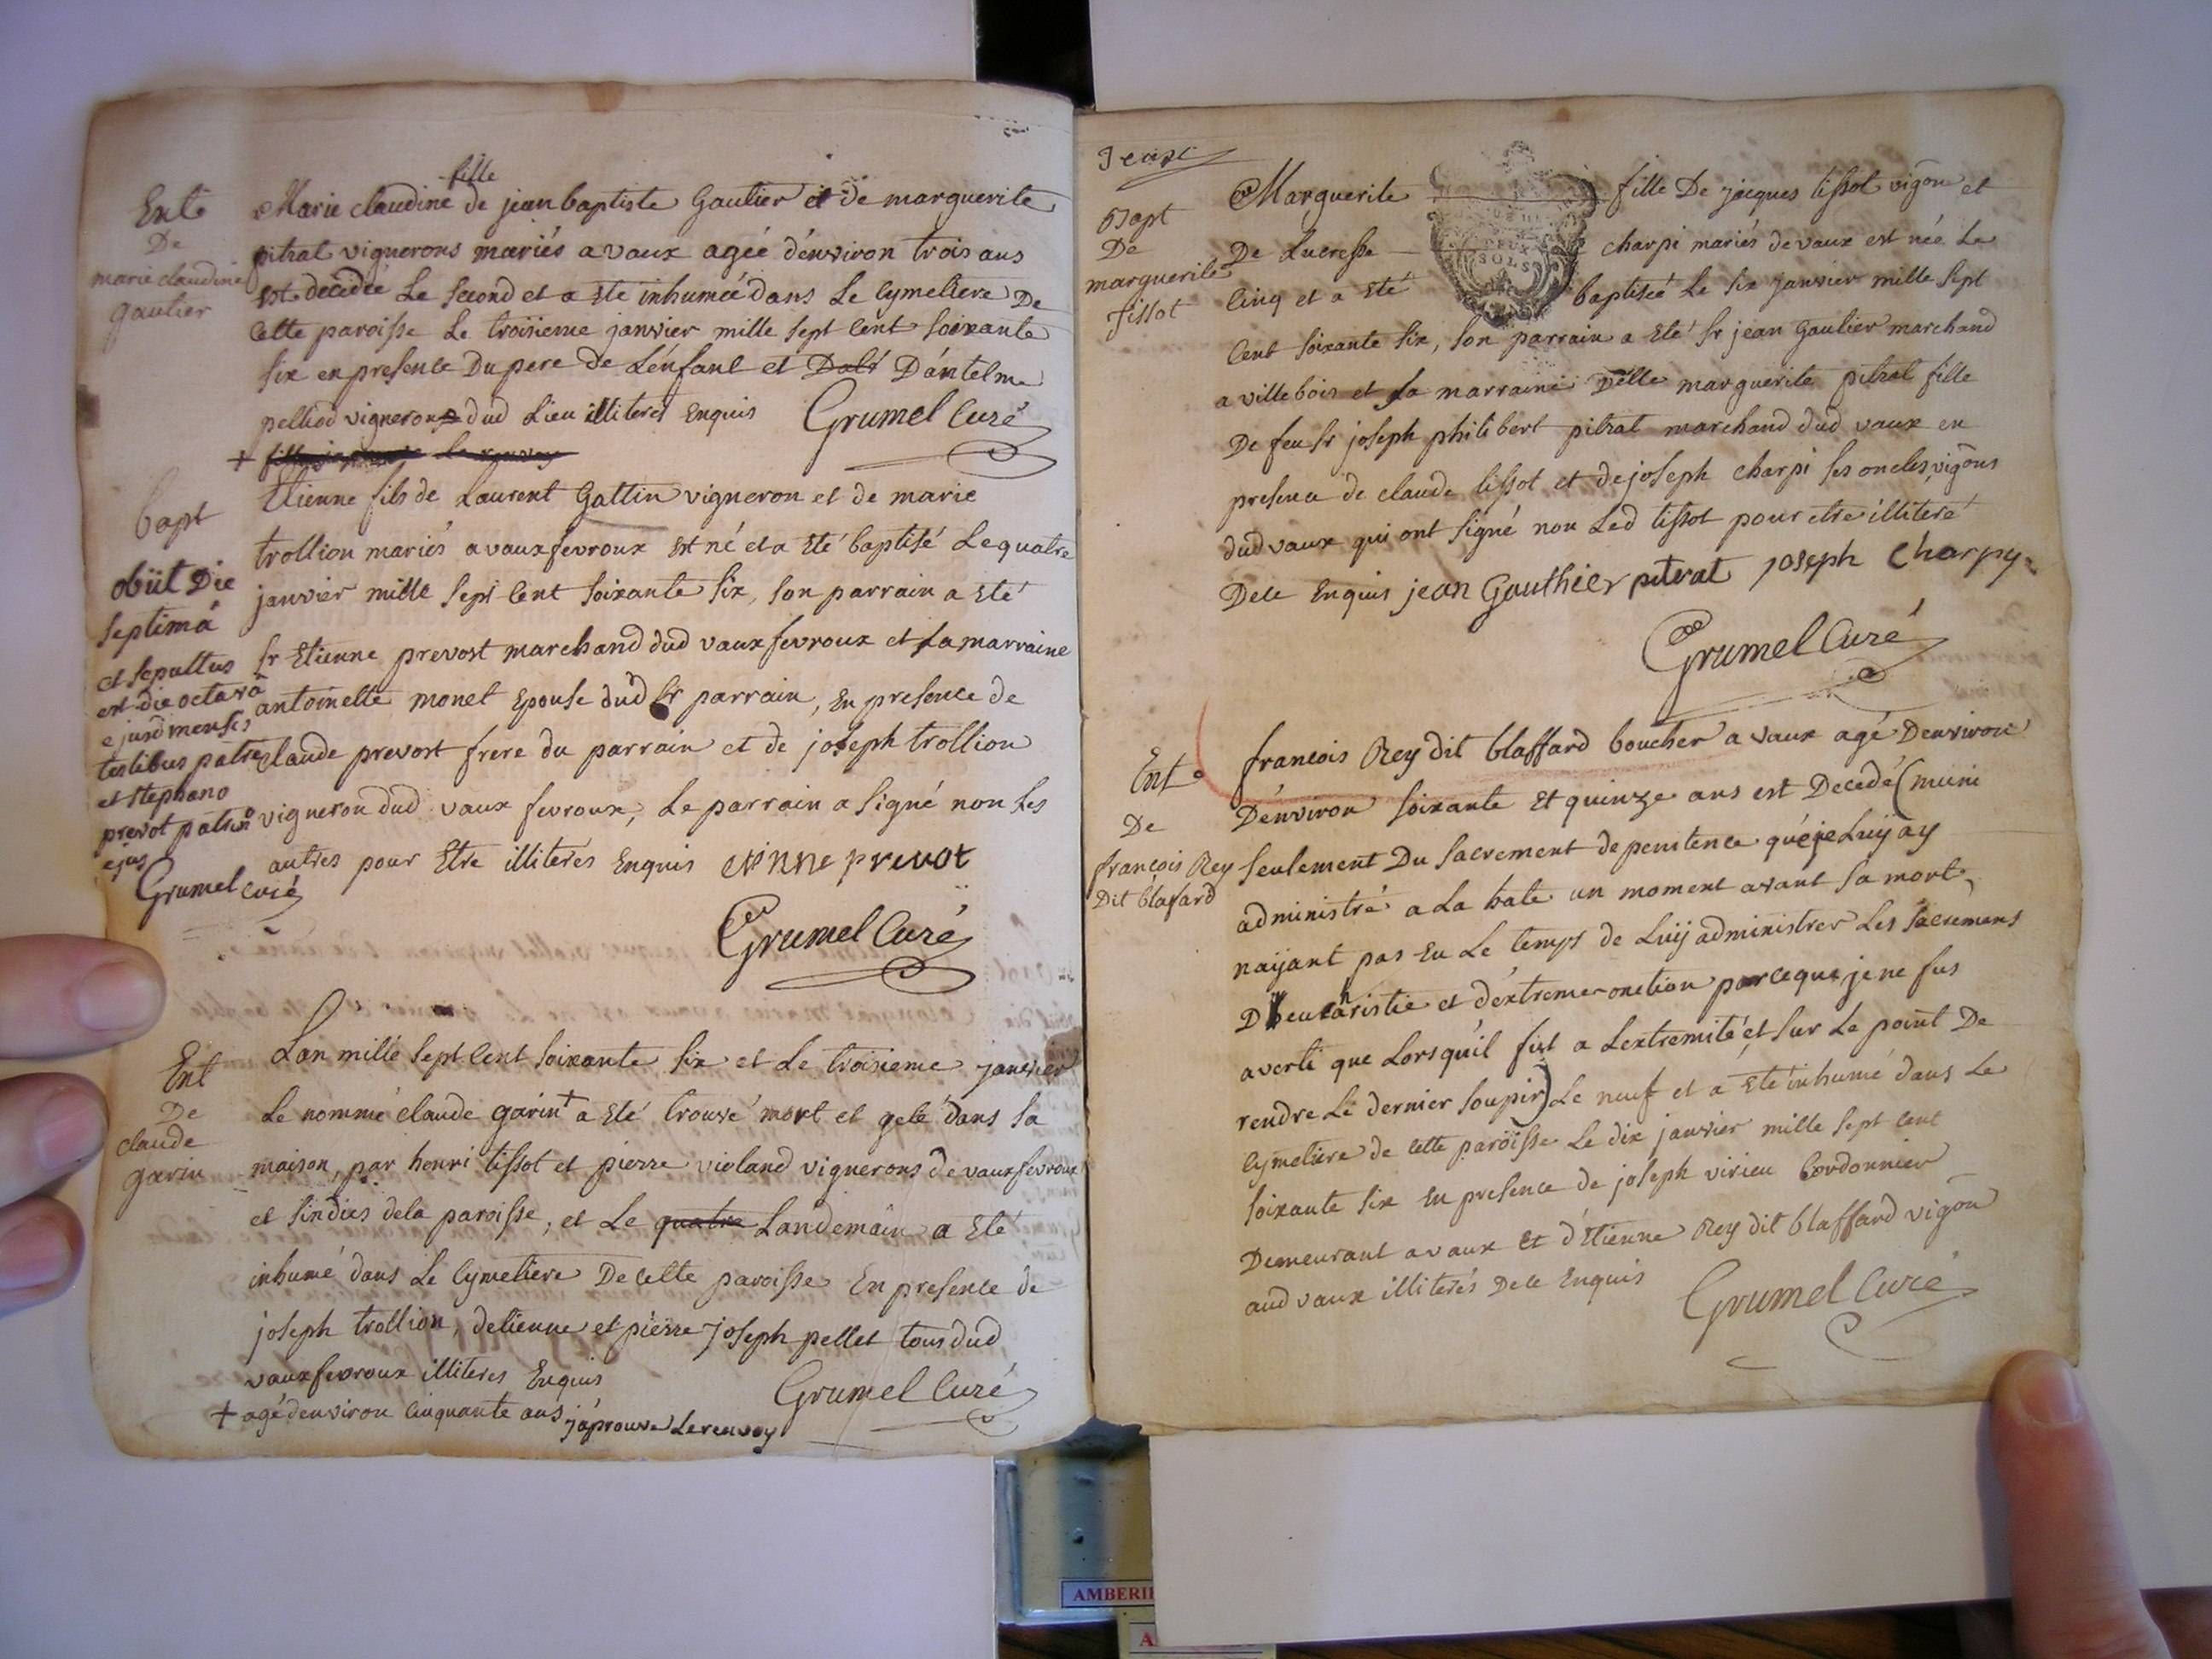 Ent
De
marie claudine
gautier
fille
Marie claudine de jean baptiste Gautier et de marguerite
pitrat vignerons mariés a vaux agée d'environ trois ans
est decedée Le second et a ete inhumée dans Le Cymetiere De
Cette paroisse Le troisieme janvier mille sept Cent soixante
six en presence Du pere de L'enfant et D'antelme
pelliod vigneron dud Lieu illiterés Enquis Grumel Curé
+
bapt
Etienne fils de Laurent Gattin vigneron et de marie
trollion mariés a vauxfevroux est né et a Eté baptisé Le quatre
janvier mille sept Cent soixante six, son parrain a Eté
sr Etienne prevost marchand dud vauxfevroux et La marraine
antoinette monet Epouse dud sr parrain, En presence de
claude prevost frere du parrain et de joseph trollion
vigneron dud vaux fevroux, Le parrain a signé non Les
autres pour Etre illiterés Enquis etinne prevot
Grumel Curé
obiit Die
septima
et sepultus
est die octava
ejusd mensis
testibus patre
et stephano
prevot patrino
ejus
Grumel curé
Ent
De
claude
garin
Lan mille sept Cent soixante six et Le troisieme janvier
Le nommé claude garin + a Eté trouvé mort et gelé dans sa
maison, par henri tissot et pierre violand vignerons de vauxfevroux
et sindics dela paroisse, et Le quatre Landemain a Eté
inhumé dans Le Cymetiere De Cette paroisse En presence de
joseph trollion, detienne et pierre joseph pellet tous dud
vauxfevroux illiteres Enquis Grumel Curé
+ agé denviron Cinquante ans j'aprouve Le renvoy
Bapt
De
marguerite
tissot
Marguerite fille De jacques tissot vigon et
De Lucresse charpi mariés de vaux est née Le
Cinq et a Eté baptisée Le six janvier mille sept
SOLS
Cent soixante six, son parrain a Eté sr jean Gautier marchand
a villebois et La marraine Delle marguerite pitrat fille
De feu sr joseph philibert pitrat marchand dud vaux en
presence de claude tissot et de joseph charpi ses oncles, vigons
dud vaux qui ont signé non Led tissot pour etre illiteré
Dece Enquis jean Gauthier pitrat joseph Charpy
Grumel Curé
Ent
De
françois Rey
Dit blaffard
françois Rey dit blaffard boucher a vaux agé Denviron
D'environ soixante Et quinze ans est Decedé (muni
seulement Du sacrement de penitence que je Luij ay
administré a La hate un moment avant sa mort,
naijant pas Eu Le temps de Luij administrer Les sacremens
D'eucharistie et d'extreme onction parceque je ne fus
averti que Lorsqu'il fut a Lextremité et sur Le point De
rendre Le dernier soupir) Le neuf et a Eté inhumé dans Le
Cymetiere de Cette paroisse Le dix janvier mille sept Cent
soixante six En presence de joseph virieu Cordonnier
Demeurant a vaux Et d'Etienne Rey dit blaffard vigon
aud vaux illiterés Dece Enquis Grumel Curé
AMBERIE